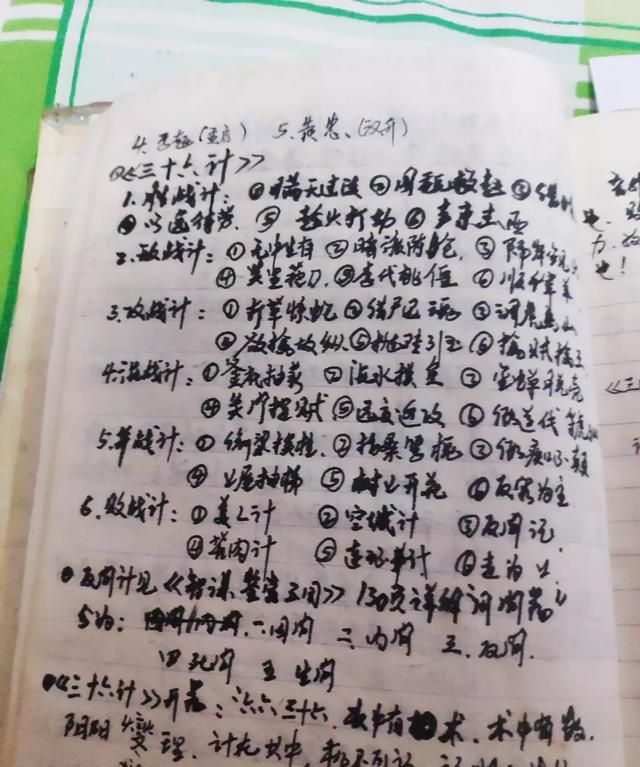 4. 马超(孟启) 5. 黄忠、(汉升)
《三十六计》
1. 胜战计: ①瞒天过海 ②围魏救赵 ③借
④以逸待劳 ⑤趁火打劫 ⑥声东击西
2. 敌战计: ①无中生有 ②暗渡陈仓 ③隔岸观火
④笑里藏刀 ⑤李代桃僵 ⑥顺手牵羊
3. 攻战计: ①打草惊蛇 ②借尸还魂 ③调虎离山
④欲擒故纵 ⑤抛砖引玉 ⑥擒贼擒王
4. 混战计: ①釜底抽薪 ②浑水摸鱼 ③金蝉脱壳
④关门捉贼 ⑤远交近攻 ⑥假道伐虢
5. 并战计: ①偷梁换柱 ②指桑骂槐 ③假痴不颠
④上屋抽梯 ⑤树上开花 ⑥反客为主
6. 败战计: ①美人计 ②空城计 ③反间计
④苦肉计 ⑤连环计 ⑥走为上
反间计见《智谋 鉴 间》130页详解 间
5为: 一因间 二、内间 三、反间.
四死间 五 生间
《三十六计》开 : 六六三十六, 数中有术, 术中有数.
阴阳燮理, 计在其中, 机不可设
也,
力,
也!
《三